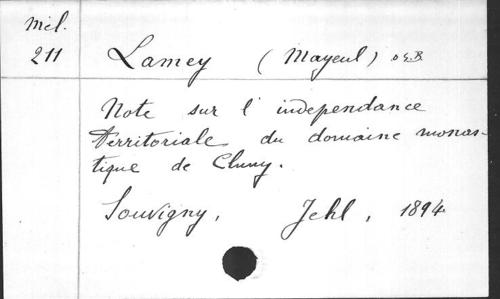 Mél.
211
Lamey (Mayeul) O.S.B.
Note sur l'independance
Territoriale du domaine monas-
tique de Cluny.
Souvigny, Jehl, 1894